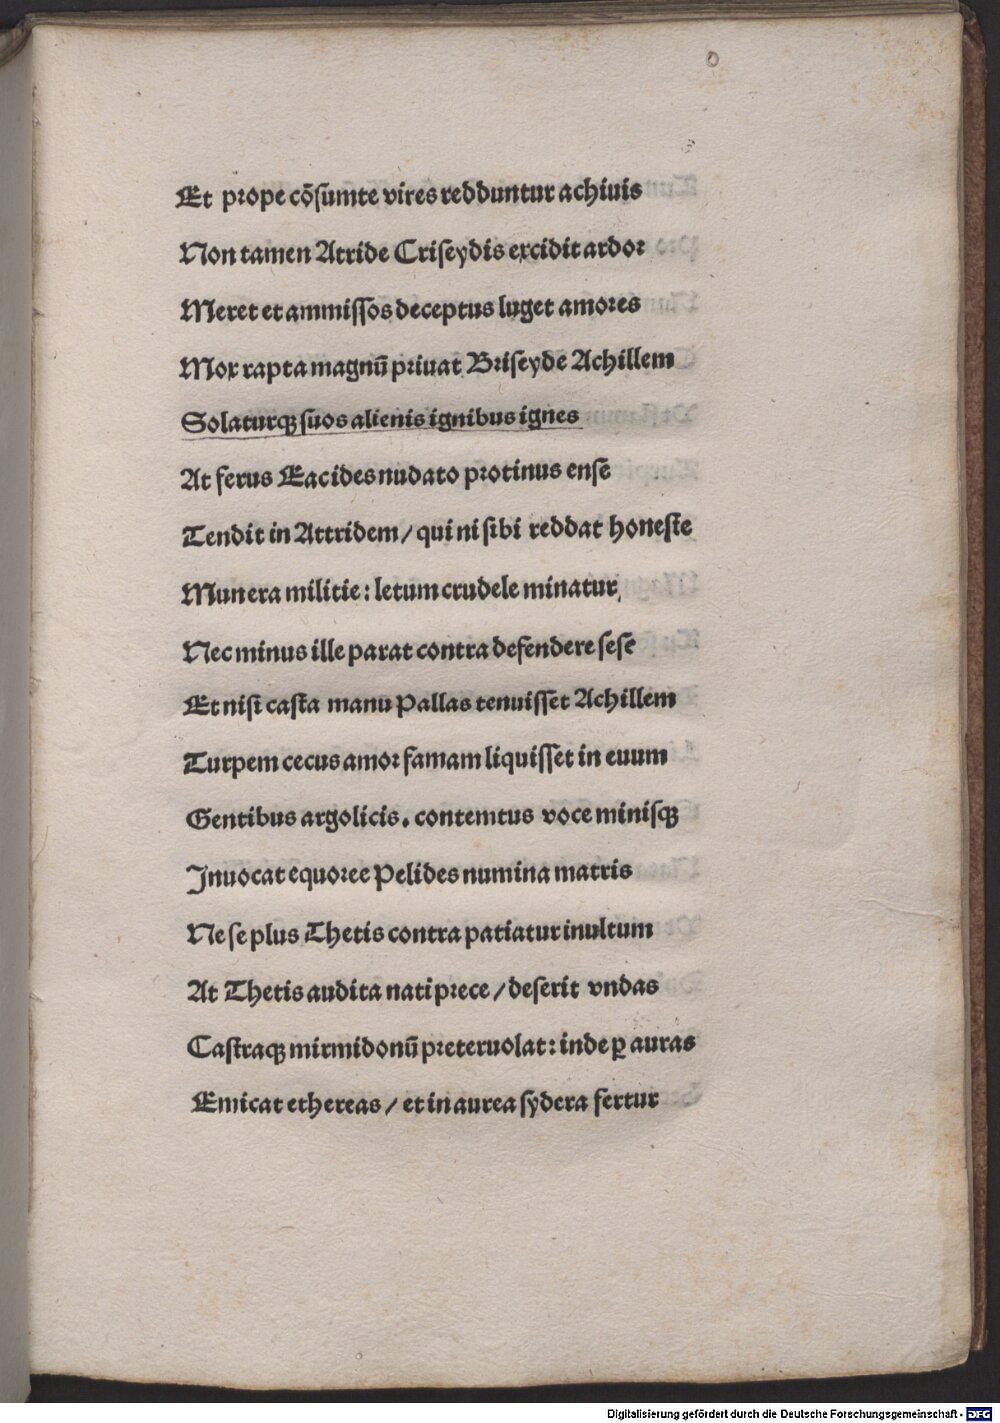 Et prope cõſumte vires redduntur achiuis
Non tamen Atride Criſeydis excidit ardor
Meret et ammiſſos deceptus luget amores
Mox rapta magnũ priuat Briſeyde Achillem
Solaturqꝫ ſuos alienis ignibus ignes
At ferus Eacides nudato protinus enſe
Tendit in Attridem / qui ni ſibi reddat honeſte
Munera militie: letum crudele minatur,
Nec minus ille parat contra defendere ſeſe
Et niſi caſta manu Pallas tenuiſſet Achillem
Turpem cecus amor famam liquiſſet in euum
Gentibus argolicis. contemtus voce miniſqꝫ
Inuocat equoree Pelides numina matris
Ne ſe plus Thetis contra patiatur inultum
At Thetis audita nati prece / deſerit vndas
Caſtraqꝫ mirmidonũ preteruolat: inde ꝑ auras
Emicat ethereas / et in aurea ſydera fertur
Digitalisierung gefördert durch die Deutsche Forschungsgemeinschaft - DFG